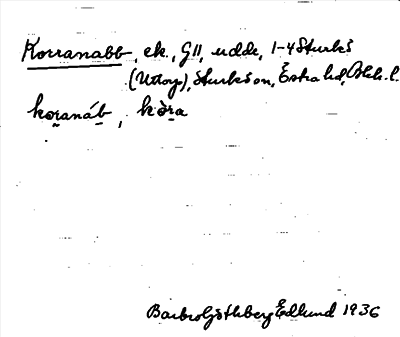 Korranabb, ek., G11, udde, 1-4 Sturkö
(Uttorp), Sturkö sn, Östra hd, Blek. l.
koranáb, kòra
Barbro Götherberg Edlund 1936